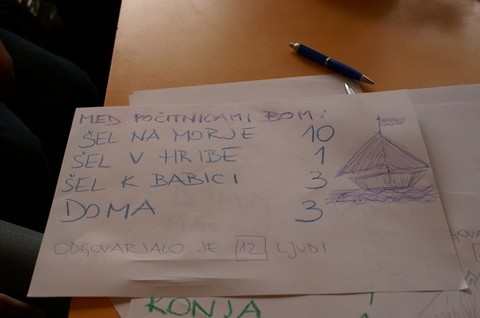 MED POČITNICAMI BOM:
ŠEL NA MORJE 10
ŠEL V HRIBE 1
ŠEL K BABICI 3
DOMA 3
ODGOVARJALO JE 12 LJUDI
KONJA